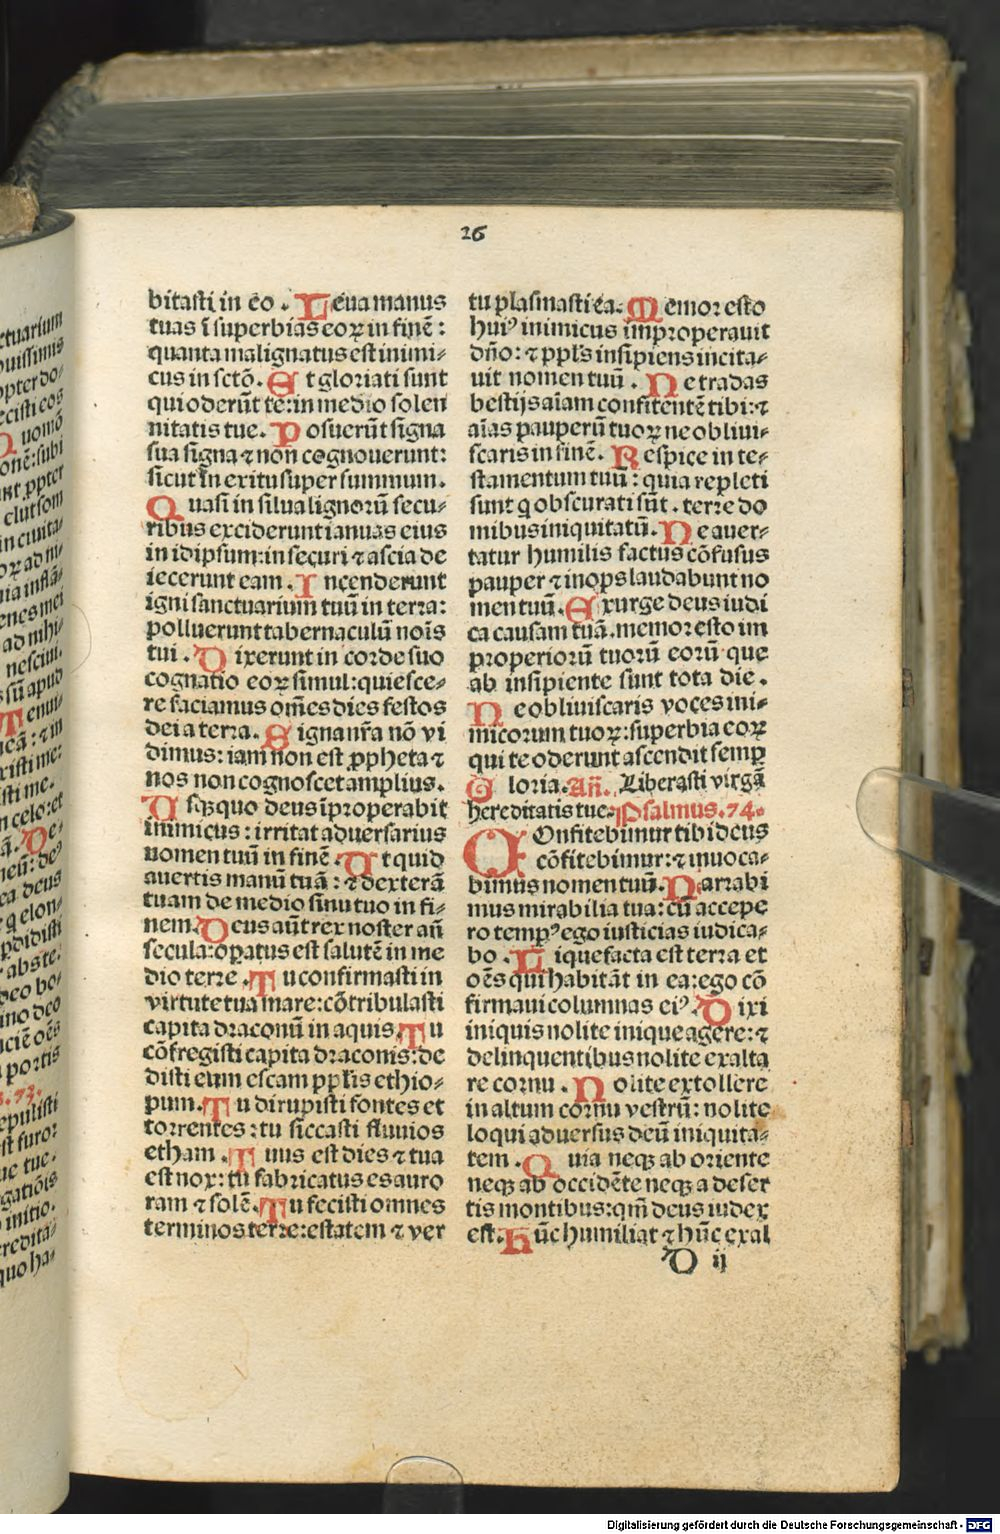 26
bitasti in eo . Leua manus
tuas ī superbias eoꝝ in finē :
quanta malignatus est inimi-
cus in sctō. Et gloriati sunt
qui oderūt te: in medio solen
nitatis tue. Posuerūt signa
sua signa ⁊ non cognouerunt:
sicut in exitu super summum.
Quasi in silua lignorū secu-
ribus exciderunt ianuas eius
in idipsum: in securi ⁊ ascia de
iecerunt eam . Incenderunt
igni sanctuarium tuū in terra:
polluerunt tabernaculū noīs
tui . Dixerunt in corde suo
cognatio eoꝝ simul: quiesce-
re faciamus om̄es dies festos
dei a terra. Signa nr̄a nō vi
dimus: iam non est ꝓpheta ⁊
nos non cognoscet amplius.
Usqꝫquo deus īproperabit
inimicus : irritat aduersarius
nomen tuū in finē . Ut quid
auertis manū tuā : ⁊ dexterā
tuam de medio sinu tuo in fi-
nem. Deus aūt rex noster añ
secula: oꝑatus est salutē in me
dio terre . Tu confirmasti in
virtute tua mare: cōtribulasti
capita draconū in aquis. Tu
cōfregisti capita draconis: de
disti eum escam pplis ethio-
pum. Tu dirupisti fontes et
torrentes : tu siccasti fluuios
etham . Tuus est dies ⁊ tua
est nox: tu fabricatus es auro
ram ⁊ solē. Tu fecisti omnes
terminos terre: estatem ⁊ ver
tu plasmasti ea. Memor esto
huiꝰ inimicus improperauit
dño: ⁊ ppls insipiens incita-
uit nomen tuū . Ne tradas
bestijs aīam confitentē tibi: ⁊
aīas pauperū tuoꝝ ne obliui-
scaris in finē. Respice in te-
stamentum tuū : quia repleti
sunt q obscurati sūt . terre do
mibus iniquitatū. Ne auer-
tatur humilis factus cōfusus
pauper ⁊ inops laudabunt no
men tuū. Exurge deus iudi
ca causam tuā. memor esto im
properiorū tuorū eorū que
ab insipiente sunt tota die .
Ne obliuiscaris voces ini-
micorum tuoꝝ: superbia eoꝝ
qui te oderunt ascendit semꝑ
Gloria. Añ. Liberasti virgā
hereditatis tue. Psalmus. 74.
COnfitebimur tibi deus
cōfitebimur: ⁊ inuoca-
bimus nomen tuū. Narrabi
mus mirabilia tua: cū accepe
ro tempꝰ ego iusticias iudica-
bo . Liquefacta est terra et
oēs qui habitāt in ea: ego cō
firmaui columnas eiꝰ. Dixi
iniquis nolite inique agere: ⁊
delinquentibus nolite exalta
re cornu . Nolite extollere
in altum cornu vestrū: nolite
loqui aduersus deū iniquita-
tem . Quia neqꝫ ab oriente
neqꝫ ab occidēte neqꝫ a deser
tis montibus: qm̄ deus iudex
est. Hūc humiliat ⁊ hūc exal
D ij
Digitalisierung gefördert durch die Deutsche Forschungsgemeinschaft - DFG